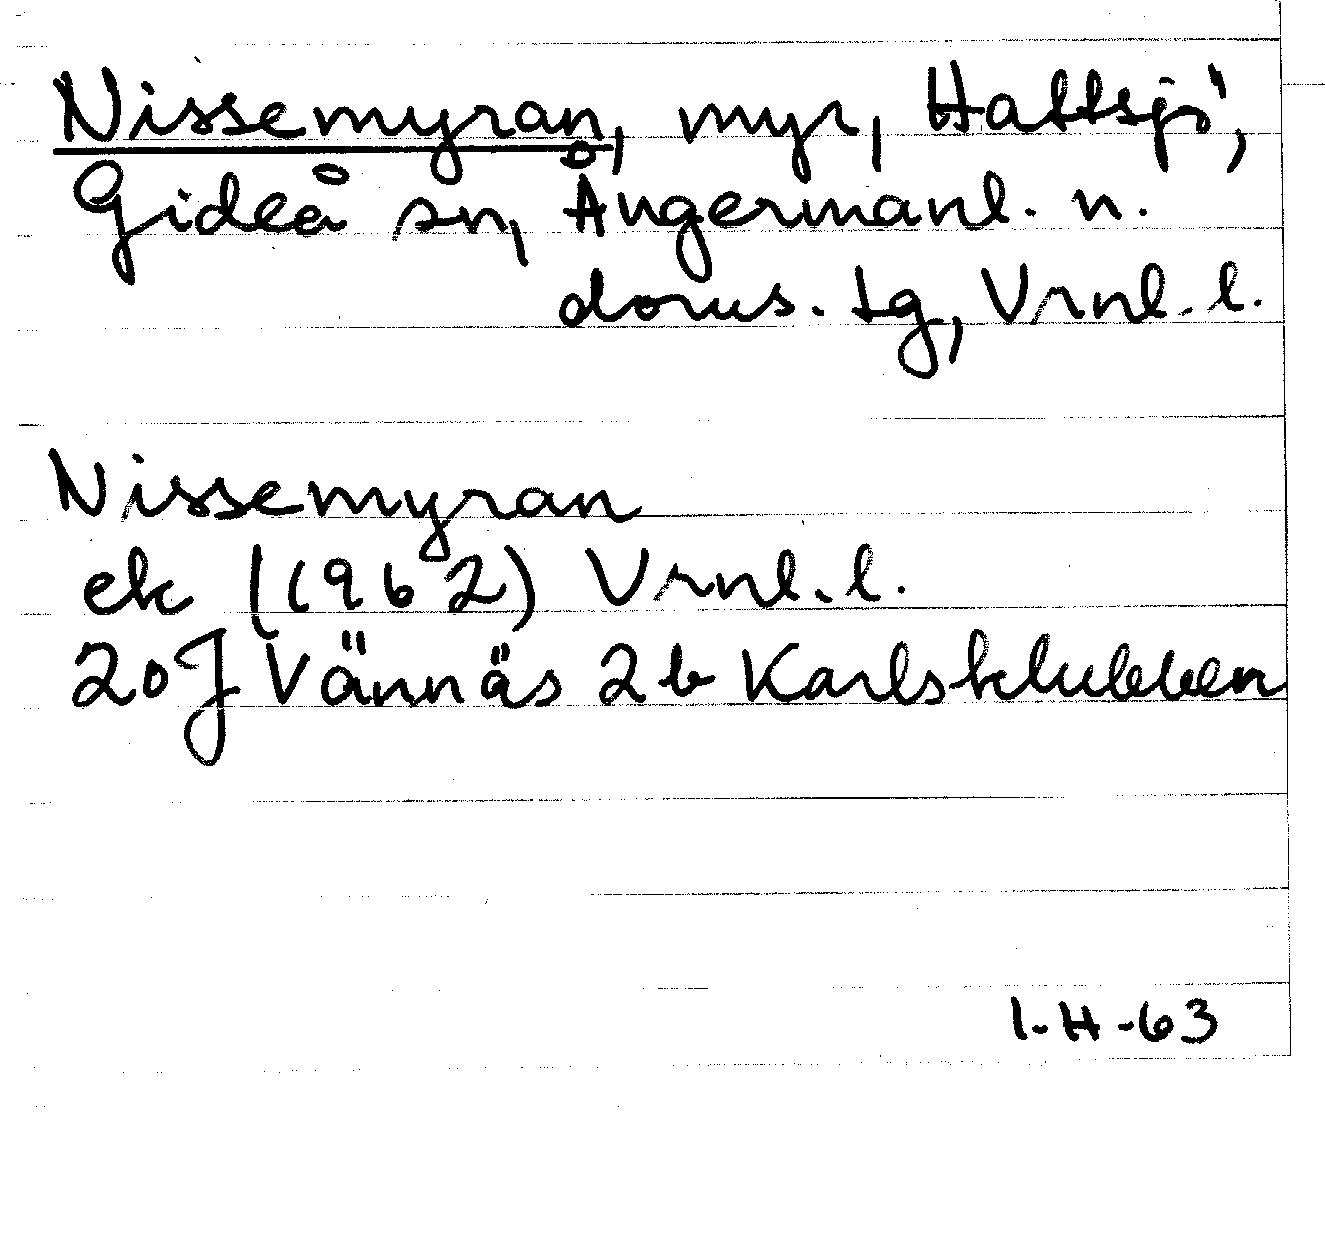 Nissemyran, myr, Hattsjö,
Gideå sn, Ångermanl. n.
doms. tg, Vrnl. l.
Nissemyran
ek (1962) Vrnl. l.
20 J Vännäs 2b Karlsklubben
1-H-63